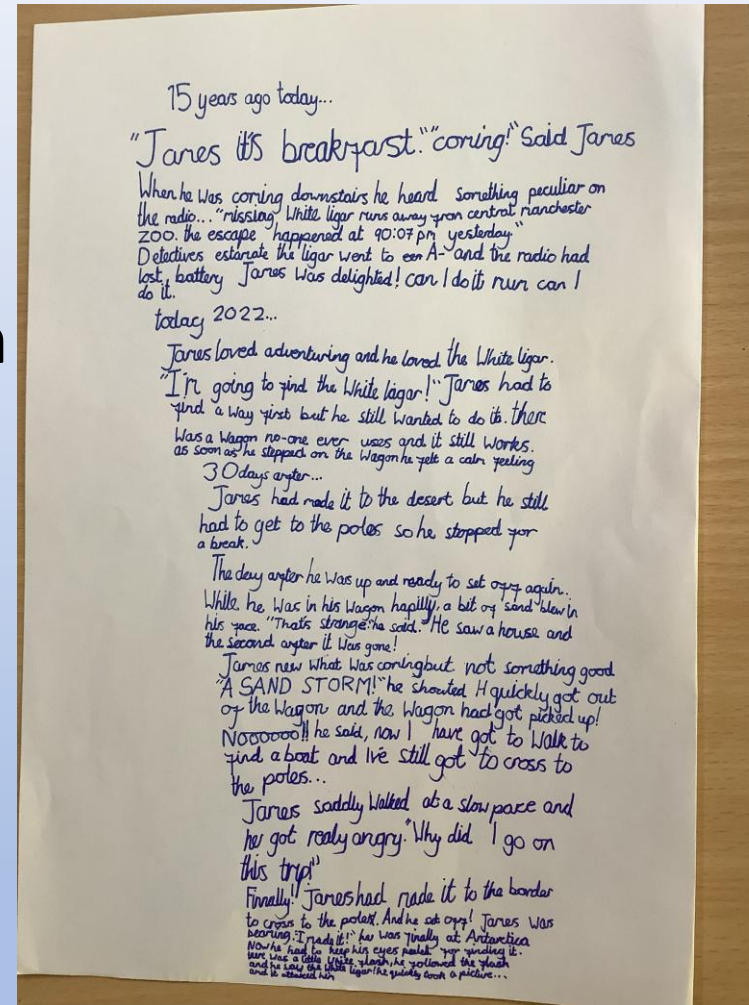 15 years ago today...
"James it's breakfast." "coming!" Said James
When he was coming downstairs he heard something peculiar on
the radio... "missing White ligar runs away from central manchester
ZOO. the escape happened at 90:07 pm yesterday."
Detectives estamate the ligar went to een A- and the radio had
lost battery James was delighted! can I do it mum can I
do it.
today 2022...
James loved adventuring and he loved the White ligar.
"I'm going to find the White lagar!" James had to
find a way first but he still wanted to do it. there
was a wagon no-one ever uses and it still works.
as soon as he stepped on the Wagon he felt a calm feeling
30 days after...
James had made it to the desert but he still
had to get to the poles so he stopped for
a break.
The day after he was up and ready to set off again.
While he was in his wagon hapilly, a bit of sand blew in
his face. "That's strange" he said. He saw a house and
the second after it was gone!
James new what was coming but not something good
"A SAND STORM!" he shouted H quickly got out
of the wagon and the wagon had got picked up!
Noooooo!! he said, now I have got to walk to
find a boat and I've still got to cross to
the poles...
James saddly walked at a slow pace and
he got realy angry. "Why did I go on
this trip!"
Finnally! James had made it to the border
to cross to the poles!. And he set off! James was
bearing. "I made it!" he was finally at Antarctica
Now he had to keep his eyes pealed for finding it.
there was a little white flash, he followed the flash
and he saw the white ligar! he quickly took a picture...
and it attacked him
n